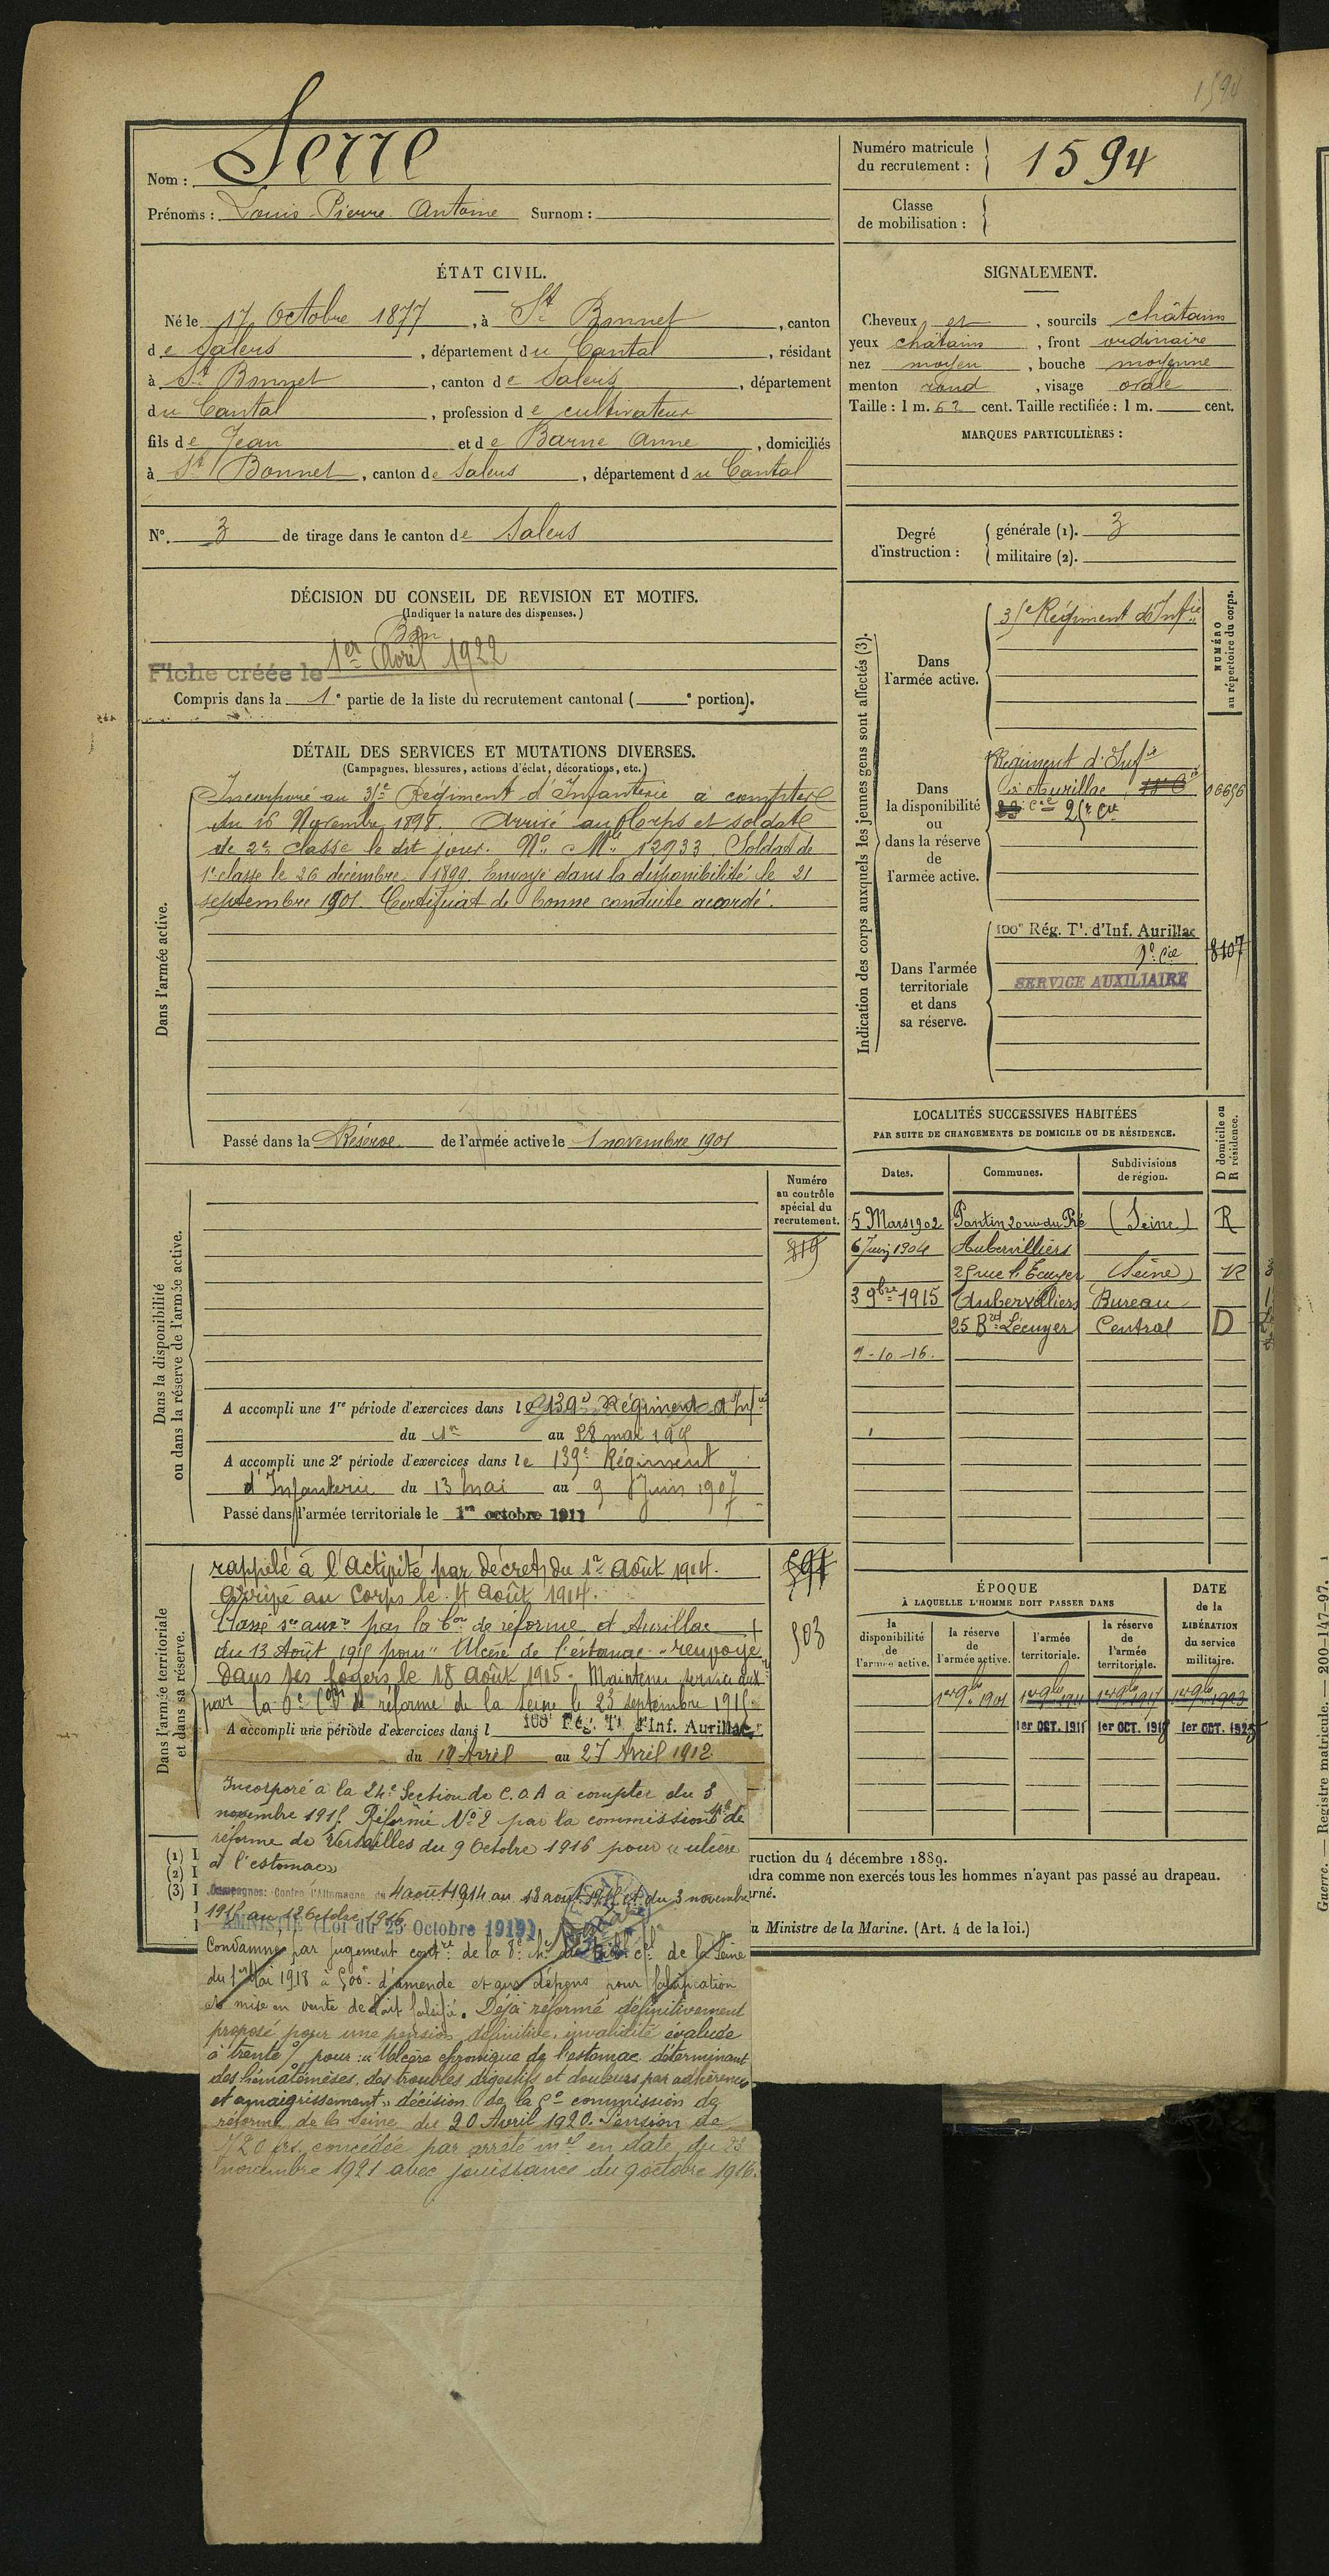 1594
Nom : Serre
Prénoms : Louis Pierre Antoine Surnom :
Numéro matricule du recrutement : 1594
Classe de mobilisation :
ÉTAT CIVIL.
Né le 17 Octobre 1877, à St Bonnet, canton
de Salers, département du Cantal, résidant
à St Bonnet, canton de Salers, département
du Cantal, profession de cultivateur
fils de Jean et de Barne Anne, domiciliés
à St Bonnet, canton de Salers, département du Cantal
N°. 3 de tirage dans le canton de Salers
SIGNALEMENT.
Cheveux et, sourcils châtains
yeux châtains, front ordinaire
nez moyen, bouche moyenne
menton rond, visage ovale
Taille : 1 m. 62 cent. Taille rectifiée : 1 m. cent.
MARQUES PARTICULIÈRES :
Degré d'instruction : générale (1). 3
militaire (2).
DÉCISION DU CONSEIL DE REVISION ET MOTIFS.
(Indiquer la nature des dispenses.)
Bon
Fiche créée le 1er Avril 1922
Compris dans la 1e partie de la liste du recrutement cantonal ( e portion).
DÉTAIL DES SERVICES ET MUTATIONS DIVERSES.
(Campagnes, blessures, actions d'éclat, décorations, etc.)
Dans l'armée active.
Incorporé au 31e Régiment d'Infanterie à compter
du 16 Novembre 1898. Arrivé au Corps et soldat
de 2e classe le dit jour. No Mle 12933 Soldat de
1e classe le 26 décembre 1899. Envoyé dans la disponibilité le 21
septembre 1901. Certificat de bonne conduite accordé.
Passé dans la Réserve de l'armée active le 1 novembre 1901
Indication des corps auxquels les jeunes gens sont affectés (3).
NUMÉRO au répertoire du corps.
Dans l'armée active.
31e Régiment d'Infie
Dans la disponibilité ou dans la réserve de l'armée active.
Régiment d'Infie
d'Aurillac
Dans l'armée territoriale et dans sa réserve.
100e Rég. Tl. d'Inf. Aurillac
9e Cie
8107
SERVICE AUXILIAIRE
LOCALITÉS SUCCESSIVES HABITÉES
PAR SUITE DE CHANGEMENTS DE DOMICILE OU DE RÉSIDENCE.
Dates. Communes. Subdivisions de région. D domicile ou R résidence.
5 Mars 1902 Pantin 20 rue du Pré (Seine) R
6 Juin 1904 Aubervilliers
25 rue l'Ecuyer (Seine) R
3 9bre 1915 Aubervilliers Bureau
25 Bd Lécuyer Central D
9-10-16.
Dans la disponibilité ou dans la réserve de l'armée active.
Numéro au contrôle spécial du recrutement.
819
A accompli une 1re période d'exercices dans le 139e Régiment d'Infie
du 1er au 28 mai 190
A accompli une 2e période d'exercices dans le 139e Régiment
d'Infanterie du 13 mai au 9 Juin 1907
Passé dans l'armée territoriale le 1er octobre 1911
Dans l'armée territoriale et dans sa réserve.
rappelé à l'activité par décret du 1er Août 1914.
arrivé au Corps le 4 Août 1914.
Classé sce auxre par la Con de réforme d'Aurillac
du 13 Août 1915 pour "Ulcère de l'estomac" renvoyé
dans ses foyers le 18 août 1915. Maintenu service auxre
par la 6e Con de réforme de la Seine le 23 septembre 1915.
503
A accompli une période d'exercices dans l 100e Rég. Tl d'Inf. Aurillac
du 19 Avril au 27 Avril 1912.
Incorporé à la 24e Section de C.O.A à compter du 3
novembre 1915. Réformé No 2 par la commission de
réforme de Versailles du 9 Octobre 1916 pour "ulcère
à l'estomac"
Campagnes: Contre l'Allemagne du 4 août 1914 au 18 août 1915 et du 3 novembre
1915 au 12 Octobre 1916
AMNISTIE (Loi du 25 Octobre 1919)
Condamné par jugement contre de la 8e Ch. du Trib. cel de la Seine
du 1er Mai 1918 à 500f d'amende et aux dépens pour falsification
et mise en vente de lait falsifié. Déjà réformé définitivement
proposé pour une pension définitive, invalidité évaluée
à trente % pour : "Ulcère chronique de l'estomac déterminant
des hématémèses, des troubles digestifs et douleurs par adhérence
et amaigrissement" décision de la 5e commission de
réforme de la Seine du 20 Avril 1920. Pension de
720 frs. concédée par arrêté mel en date du 23
novembre 1921 avec jouissance du 9 octobre 1916.
ÉPOQUE
À LAQUELLE L'HOMME DOIT PASSER DANS
la disponibilité de l'armée active. la réserve de l'armée active. l'armée territoriale. la réserve de l'armée territoriale.
DATE de la LIBÉRATION du service militaire.
1er 9bre 1901 1er 9bre 1911 1er 9bre 1917 1er 9bre 1923
1er OCT. 1911 1er OCT. 1918 1er OCT. 1925
(1) I
(2) I
(3) I
ruction du 4 décembre 1889.
dra comme non exercés tous les hommes n'ayant pas passé au drapeau.
rné.
u Ministre de la Marine. (Art. 4 de la loi.)
Guerre. — Registre matricule. — 200-147-97.